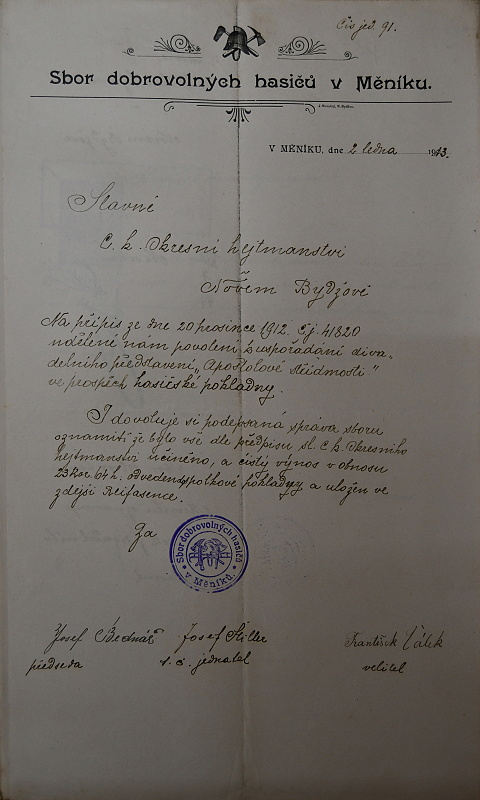 Čís jed. 91.
Sbor dobrovolných hasičů v Měníku.
V MĚNÍKU, dne 2 ledna 1913.
Slavné
C. k. Okresní hejtmanství
Novém Bydžově
Na přípis ze dne 20 prosince 1912. Čj. 41820
udělené nám povolení k uspořádání diva-
delního představení „Apoštolové střídmosti"
ve prospěch hasičské pokladny.
I dovoluje si podepsaná správa sboru
oznámiti že bylo vše dle předpisu sl. C. k. Okresního
hejtmanství učiněno, a čistý výnos v obnosu
23 kor. 64 h. odveden spolkové pokladny a uložen ve
zdejší Reifasence.
Za
Sbor dobrovolných hasičů
v Měníku.
Josef Bednář Josef Stiller František Válek
předseda t. č. jednatel velitel